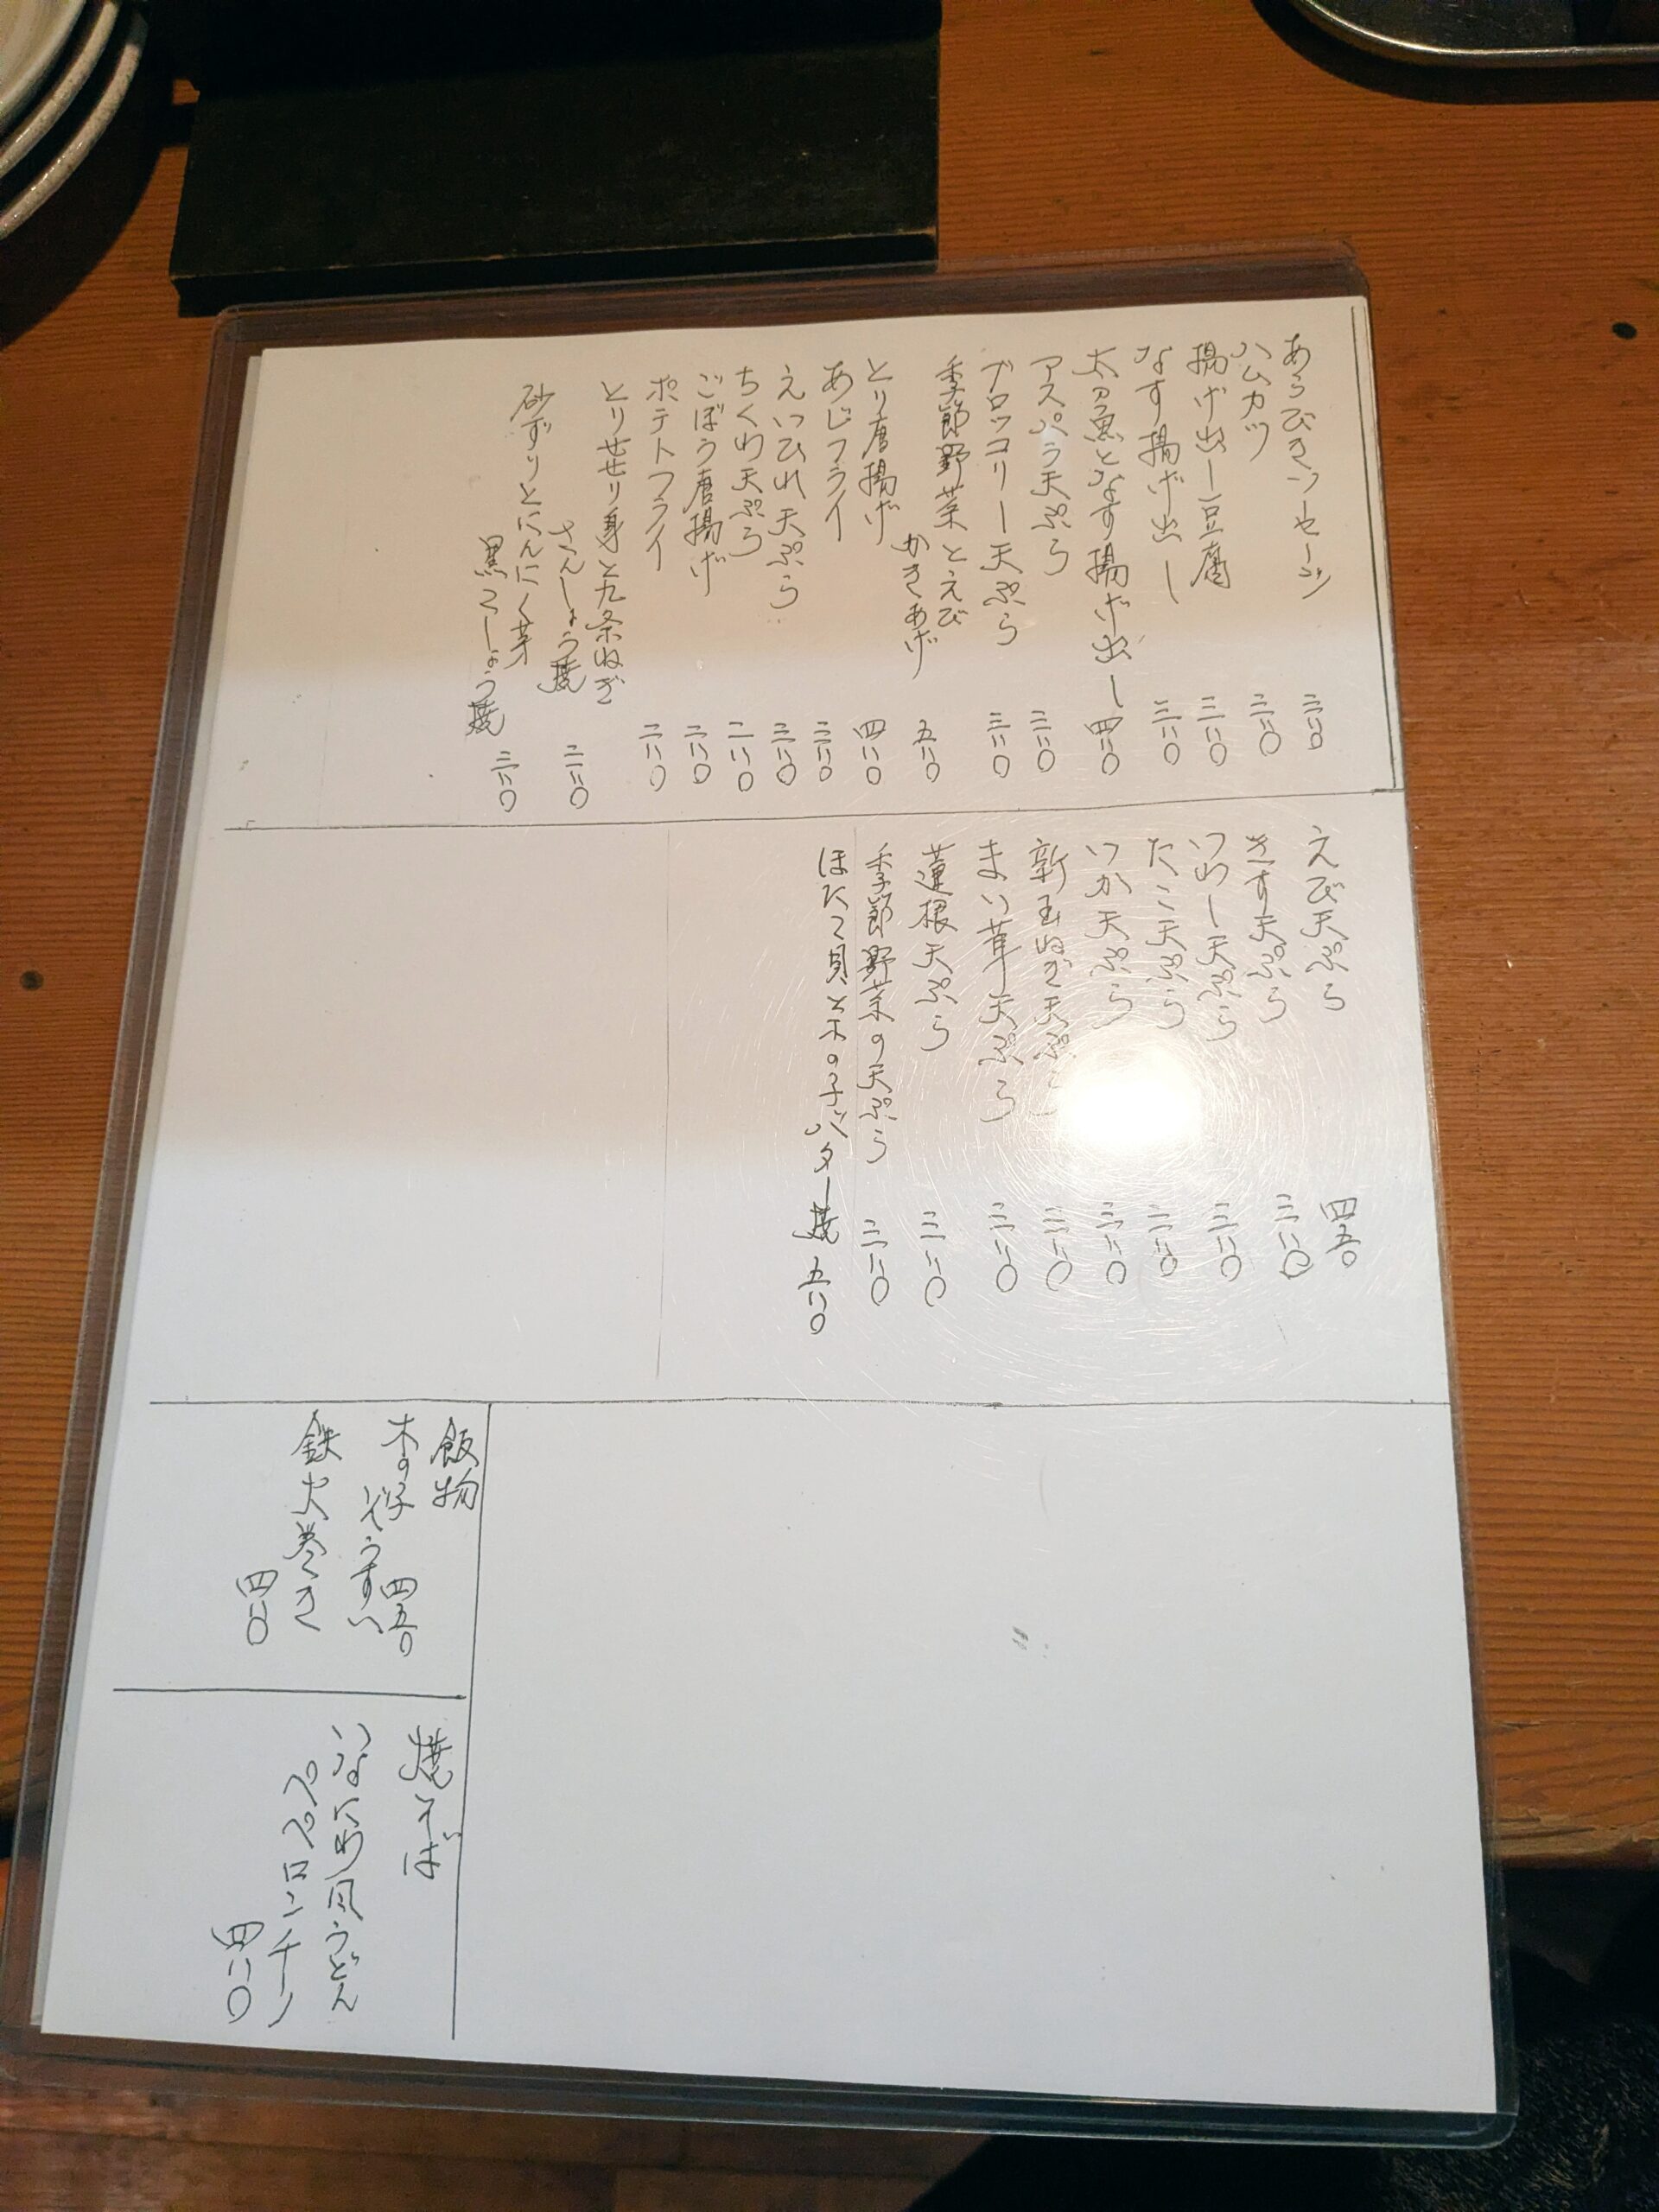 あらびきソーセージ 三八〇
ハムカツ 三八〇
揚げ出し豆腐 三八〇
なす揚げ出し 三八〇
太刀魚となす揚げ出し 四八〇
アスパラ天ぷら 三八〇
ブロッコリー天ぷら 三八〇
季節野菜とえび
かきあげ 五八〇
とり唐揚げ 四八〇
あじフライ 三八〇
えいひれ天ぷら 三八〇
ちくわ天ぷら 二八〇
ごぼう唐揚げ 二八〇
ポテトフライ 二八〇
とりせせり身と九条ねぎ
さんしょう焼 二八〇
砂ずりとにんにく芽
黒こしょう焼 三八〇
えび天ぷら 四五〇
きす天ぷら 三八〇
いわし天ぷら 三八〇
たこ天ぷら 三八〇
いか天ぷら 三八〇
新玉ねぎ天ぷら 三八〇
まい茸天ぷら 三八〇
蓮根天ぷら 三八〇
季節野菜の天ぷら 三八〇
ほたて貝と木の子バター焼 五八〇
飯物
木の子
ぞうすい 四五〇
鉄火巻き
四八〇
焼そば
いなにわ風うどん
ペペロンチーノ
四八〇